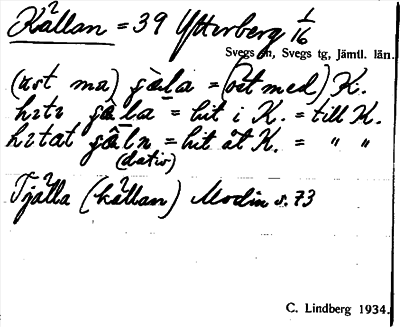 Kä²llan = 39 Ytterberg 1/16
Svegs sn, Svegs tg, Jämtl. län.
(ɯst ma) gä̀la = (öst med) K.
hɪtɪ gä̂la = hit i K. = till K.
hɪtat gä̂ln = hit åt K. = " "
(dativ)
Tjälla (kä²llan) Modin s. 73
C. Lindberg 1934.